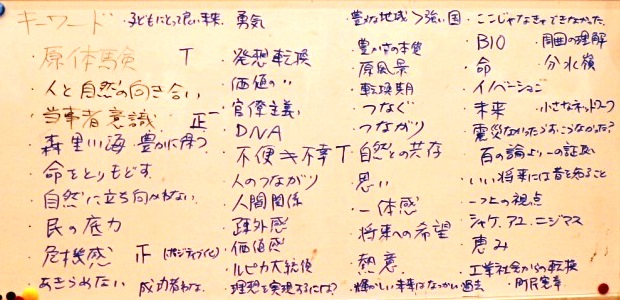 キーワード
・子どもにとって良い未来
勇気
・原体験 T
・人と自然の向き合い
・当事者意識 正一
・森里川海 豊かに保つ
・命をとりもどす
・自然に立ち向かわない
・民の底力
・危機感 正 (ポジティブ化)
・あきらめない 成功者
・発想転換
・価値の
・官僚主義
・DNA
・不便≠不幸 T
・人のつながり
・人間関係
・疎外感
・価値感
・ルピカ大統領
・理想を実現するには?
・豊かな地域>強い国
・豊かさの本質
・原風景
・転換期
・つなぐ
・つながり
・自然との共存
・思い
・一体感
・将来への希望
・熱意
・輝かしい未来はなつかしい過去
・ここじゃなきゃできなかった
・BIO 周囲の理解
・命 分水嶺
・イノベーション
・未来 小さなネットワーク
・震災なかったらどうなった?
・百の論より一の証拠
・いい将来には昔を知ること
・一つ上の視点
・シャケ、アユ、ニジマス
・恵み
・工業社会からの転換
・町民憲章